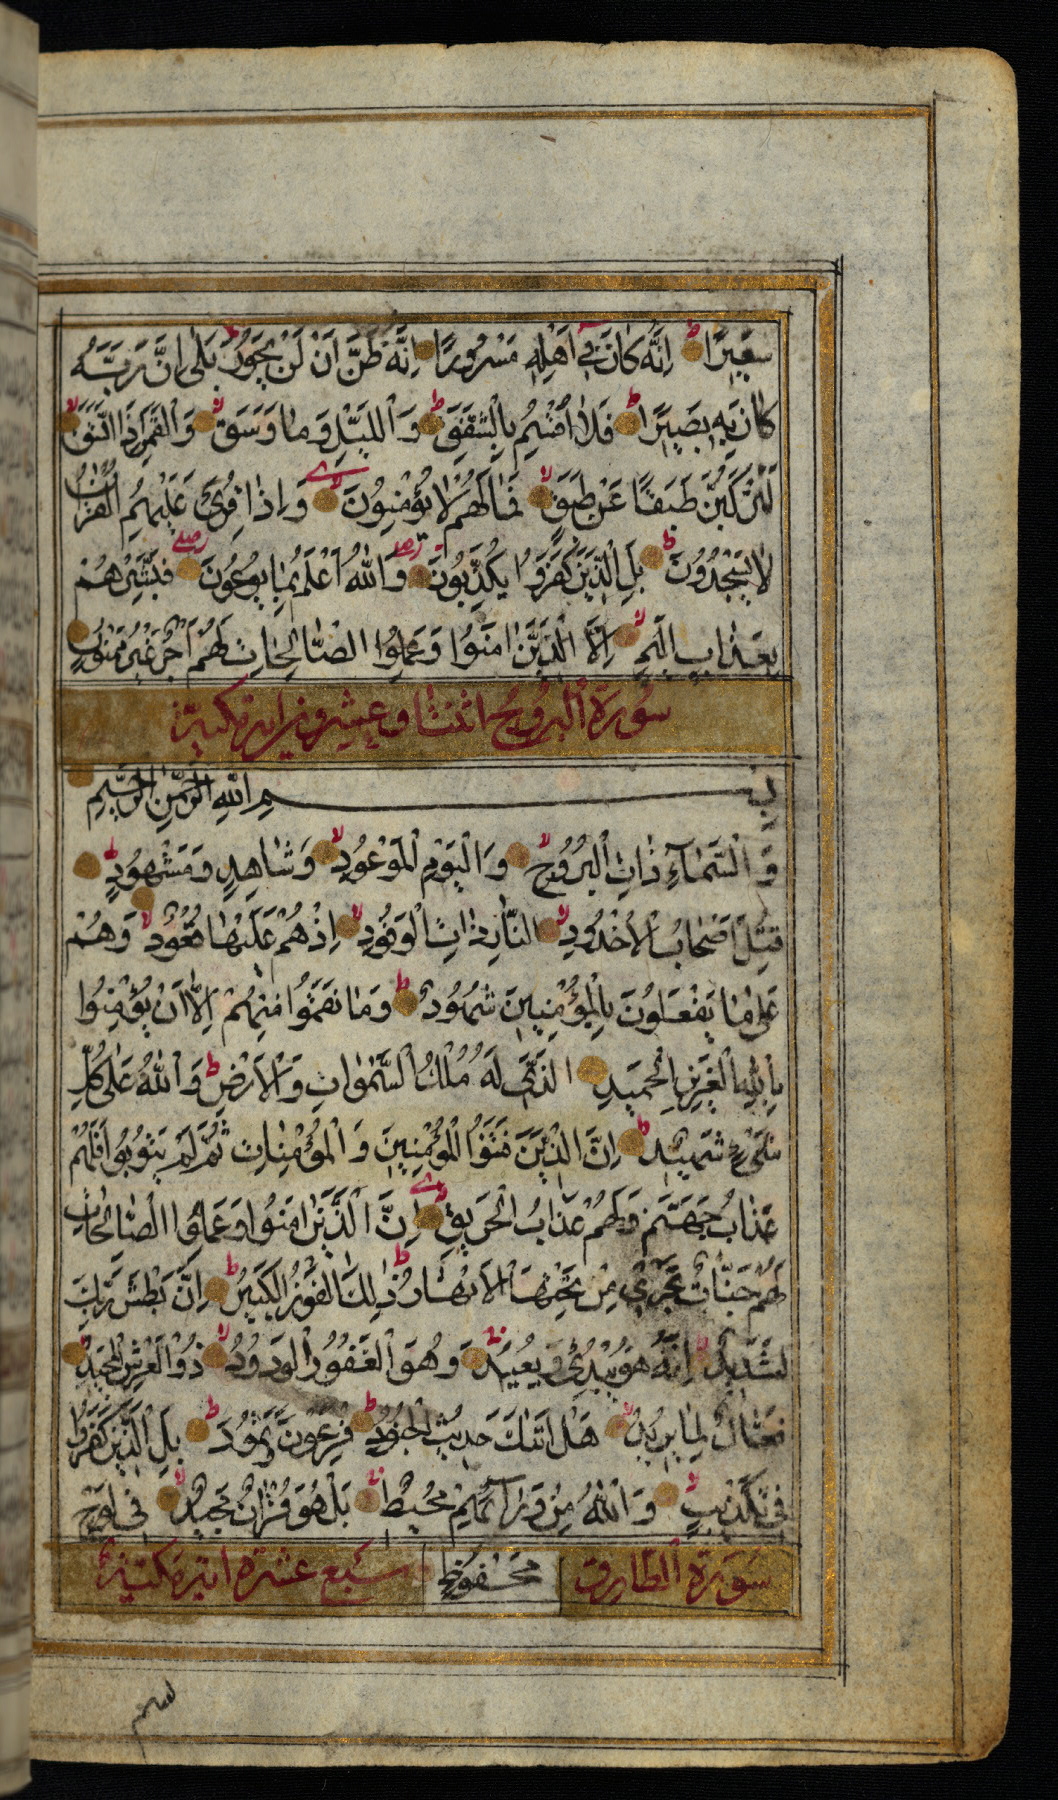 سَعِيرًا اِنَّهُ كَانَ فِي اَهْلِهِ مَسْرُورًا اِنَّهُ ظَنَّ اَنْ لَنْ يَحُورَ بَلٰى اِنَّ رَبَّهُ
كَانَ بِهِ بَصِيرًا فَلَا اُقْسِمُ بِالشَّفَقِ وَالَّيْلِ وَمَا وَسَقَ وَالْقَمَرِ اِذَا اتَّسَقَ
لَتَرْكَبُنَّ طَبَقًا عَنْ طَبَقٍ فَمَا لَهُمْ لَا يُؤْمِنُونَ وَاِذَا قُرِئَ عَلَيْهِمُ الْقُرْاٰنُ
لَا يَسْجُدُونَ بَلِ الَّذِينَ كَفَرُوا يُكَذِّبُونَ وَاللّٰهُ اَعْلَمُ بِمَا يُوعُونَ فَبَشِّرْهُمْ
بِعَذَابٍ اَلِيمٍ اِلَّا الَّذِينَ اٰمَنُوا وَعَمِلُوا الصَّالِحَاتِ لَهُمْ اَجْرٌ غَيْرُ مَمْنُونٍ
سُورَةُ الْبُرُوجِ اثنتا وعشرون اية مكية
بِسْمِ اللّٰهِ الرَّحْمٰنِ الرَّحِيمِ
وَالسَّمَآءِ ذَاتِ الْبُرُوجِ وَالْيَوْمِ الْمَوْعُودِ وَشَاهِدٍ وَمَشْهُودٍ
قُتِلَ اَصْحَابُ الْاُخْدُودِ النَّارِ ذَاتِ الْوَقُودِ اِذْ هُمْ عَلَيْهَا قُعُودٌ وَهُمْ
عَلٰى مَا يَفْعَلُونَ بِالْمُؤْمِنِينَ شُهُودٌ وَمَا نَقَمُوا مِنْهُمْ اِلَّا اَنْ يُؤْمِنُوا
بِاللّٰهِ الْعَزِيزِ الْحَمِيدِ الَّذِي لَهُ مُلْكُ السَّمٰوَاتِ وَالْاَرْضِ وَاللّٰهُ عَلٰى كُلِّ
شَيْءٍ شَهِيدٌ اِنَّ الَّذِينَ فَتَنُوا الْمُؤْمِنِينَ وَالْمُؤْمِنَاتِ ثُمَّ لَمْ يَتُوبُوا فَلَهُمْ
عَذَابُ جَهَنَّمَ وَلَهُمْ عَذَابُ الْحَرِيقِ اِنَّ الَّذِينَ اٰمَنُوا وَعَمِلُوا الصَّالِحَاتِ
لَهُمْ جَنَّاتٌ تَجْرِي مِنْ تَحْتِهَا الْاَنْهَارُ ذٰلِكَ الْفَوْزُ الْكَبِيرُ اِنَّ بَطْشَ رَبِّكَ
لَشَدِيدٌ اِنَّهُ هُوَ يُبْدِئُ وَيُعِيدُ وَهُوَ الْغَفُورُ الْوَدُودُ ذُو الْعَرْشِ الْمَجِيدُ
فَعَّالٌ لِمَا يُرِيدُ هَلْ اَتٰيكَ حَدِيثُ الْجُنُودِ فِرْعَوْنَ وَثَمُودَ بَلِ الَّذِينَ كَفَرُوا
فِي تَكْذِيبٍ وَاللّٰهُ مِنْ وَرَآئِهِمْ مُحِيطٌ بَلْ هُوَ قُرْاٰنٌ مَجِيدٌ فِي لَوْحٍ
سُورَةُ الطَّارِقِ مَحْفُوظٍ سبع عشرة اية مكية